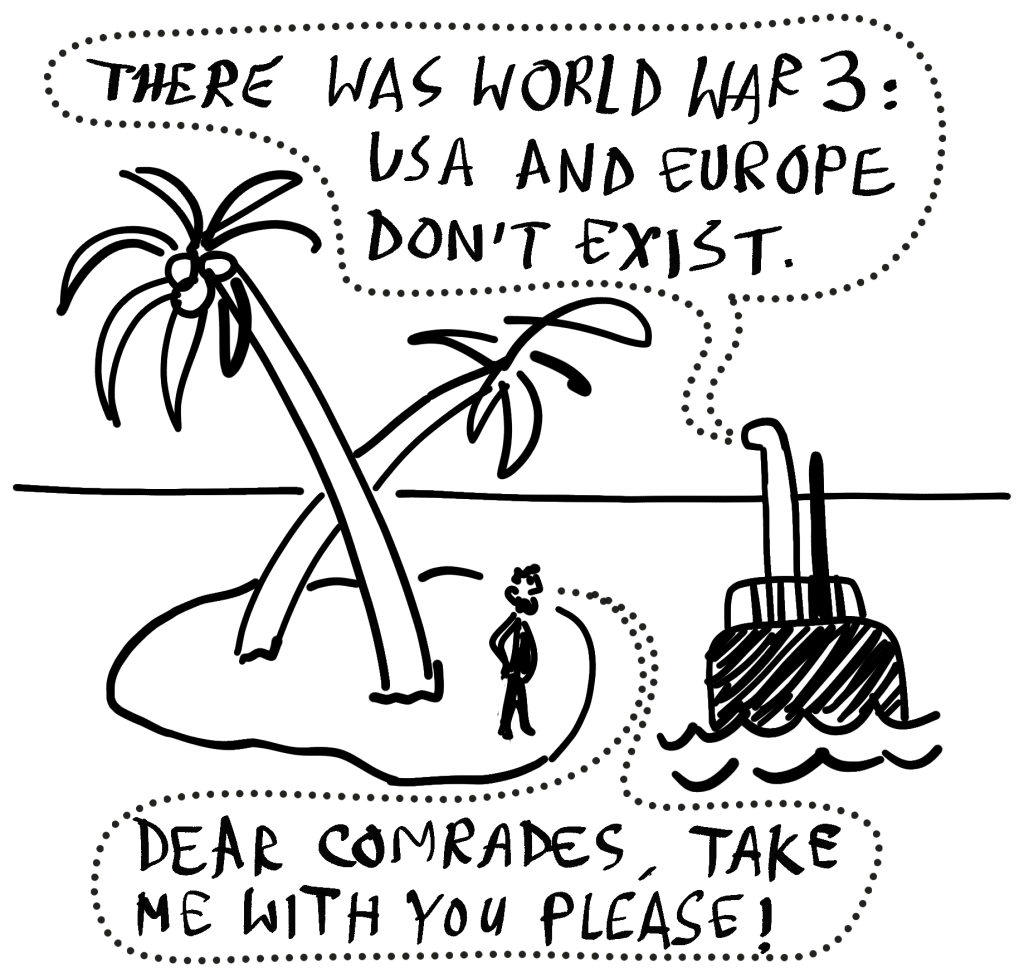 THERE WAS WORLD WAR 3:
USA AND EUROPE
DON'T EXIST.
DEAR COMRADES, TAKE
ME WITH YOU PLEASE!